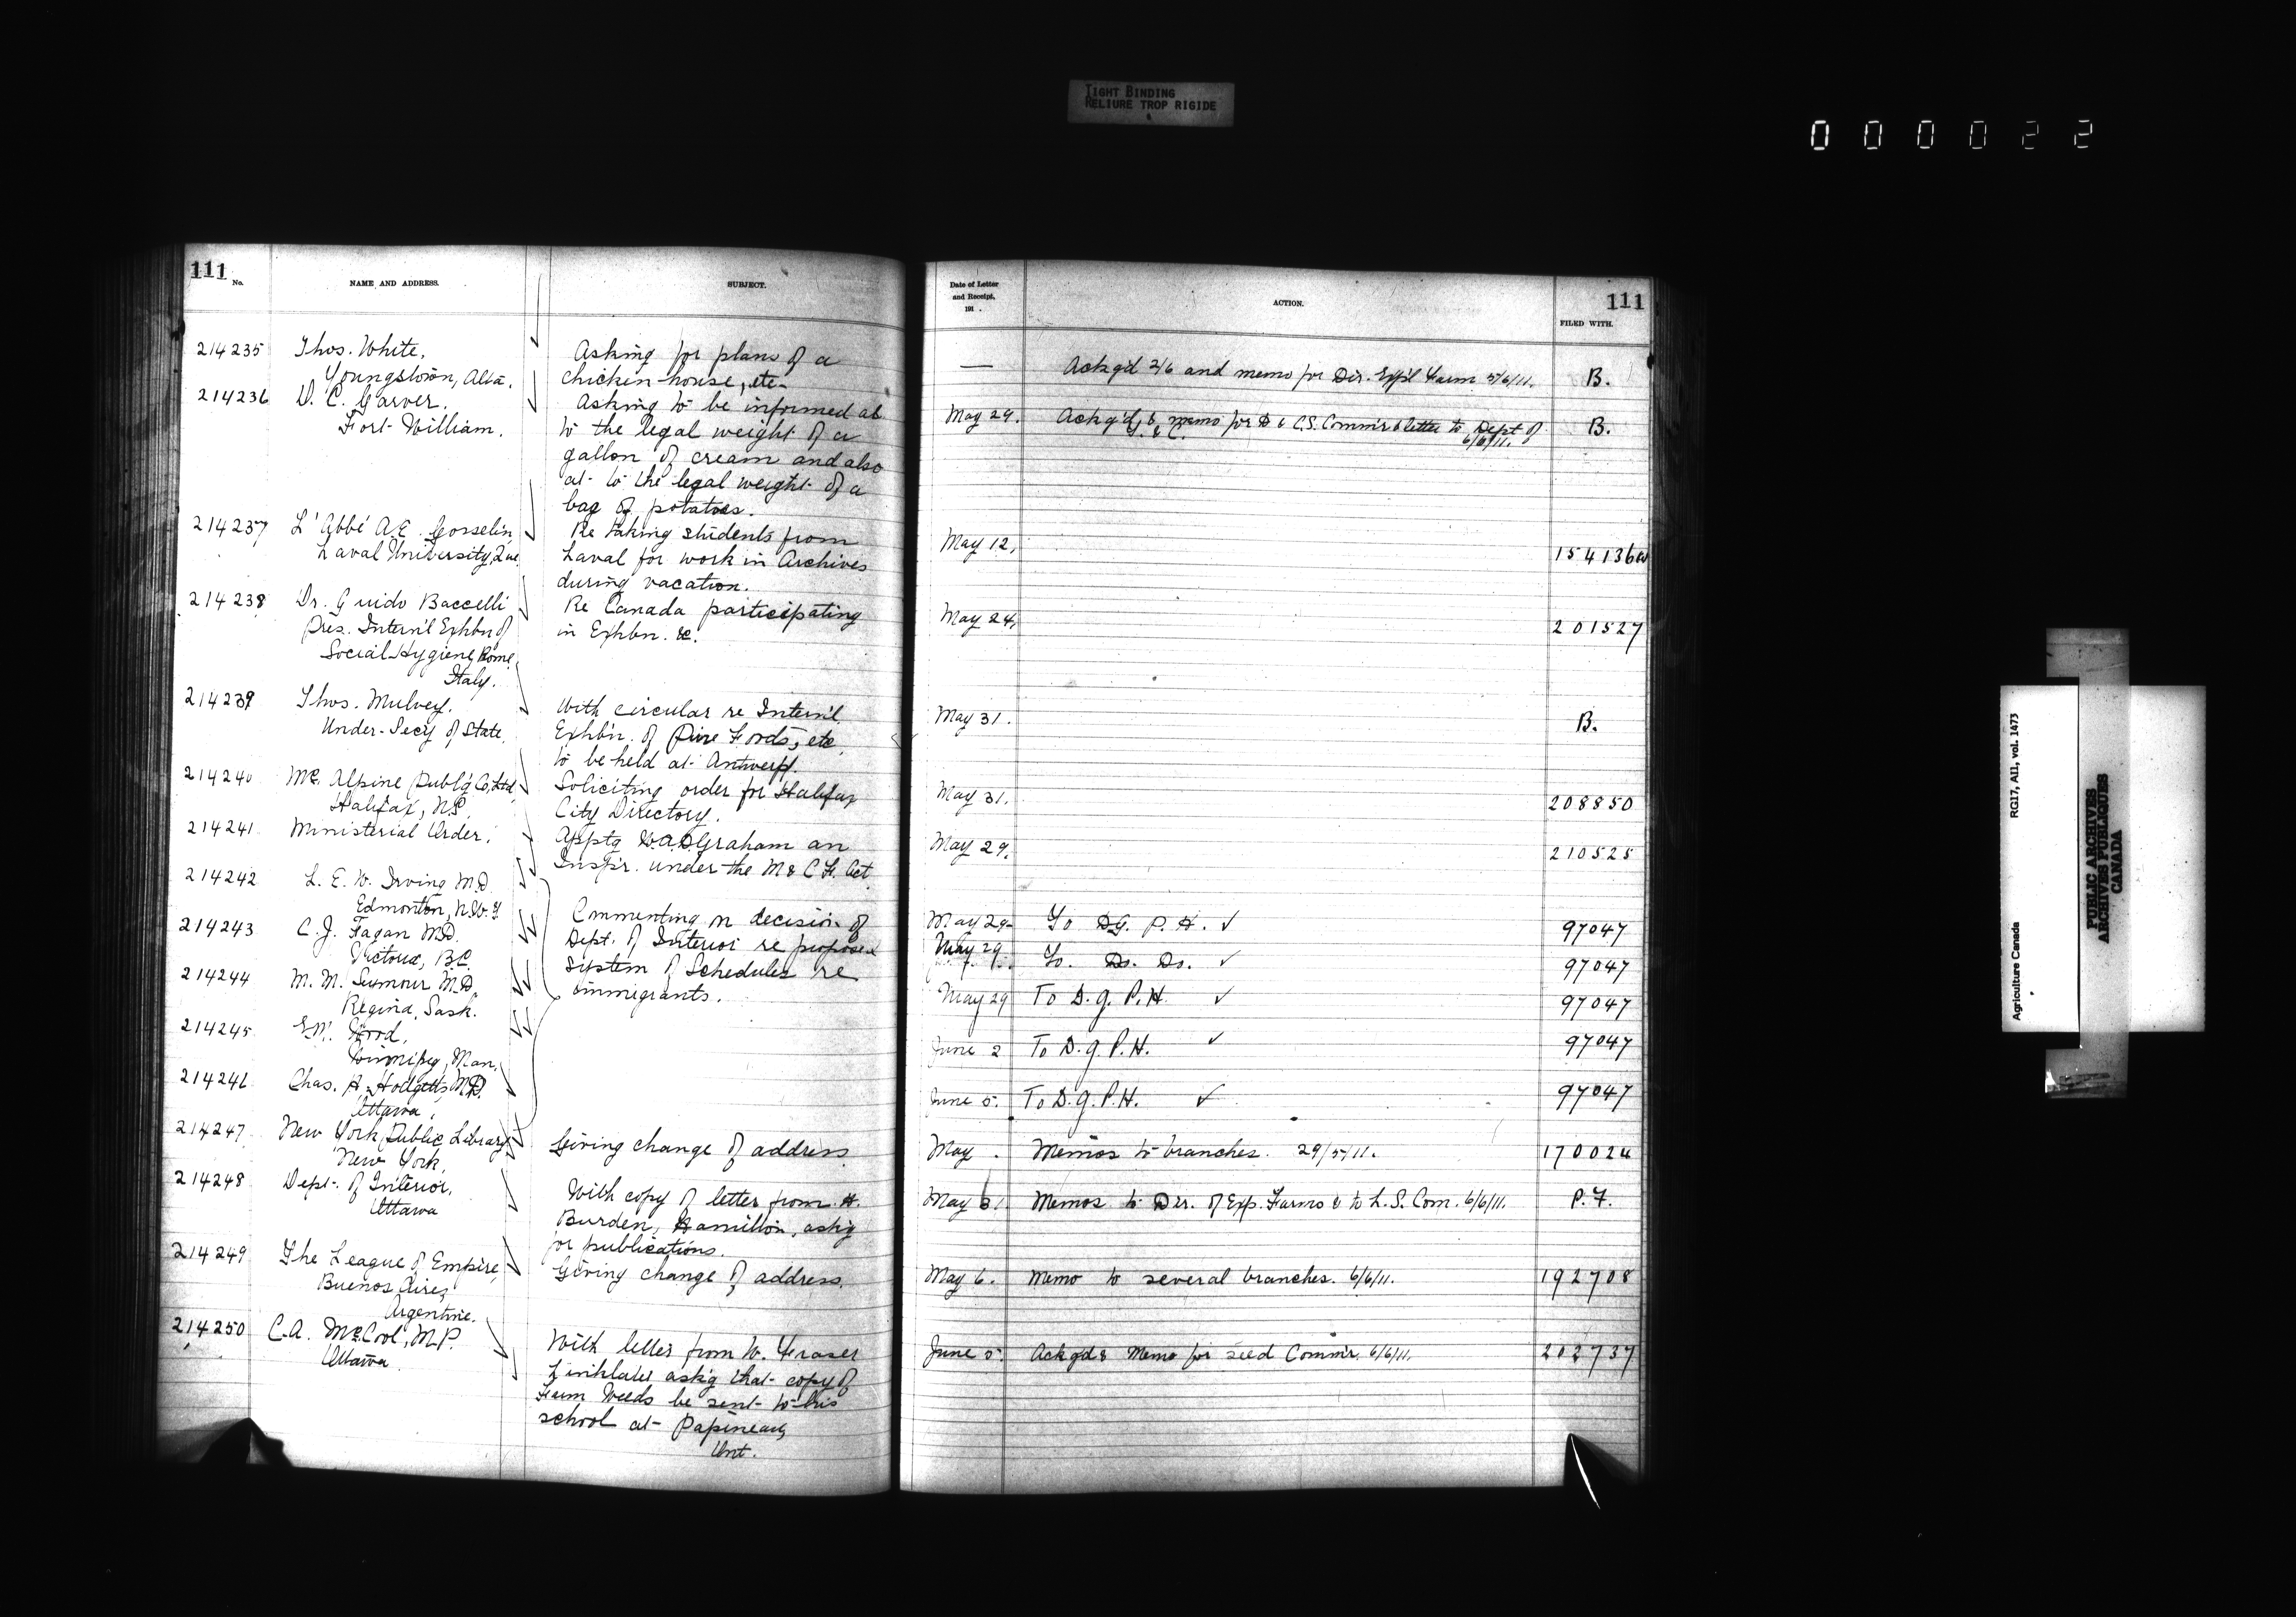 TIGHT BINDING
RELIURE TROP RIGIDE
000022
111
No.
NAME AND ADDRESS.
SUBJECT.
214235
Thos. White,
Youngstown, Alta.
Asking for plans of a
chicken-house, etc.
214236
D. C. Garver,
Fort William.
Asking to be informed as
to the legal weight of a
gallon of cream and also
as to the legal weight of a
bag of potatoes.
214237
L'Abbé A.E. Gosselin,
Laval University, Que.
Re taking students from
Laval for work in Archives
during vacation.
214238
Dr. Guido Baccelli
Pres. Intern'l Exhbn of
Social Hygiene, Rome,
Italy.
Re Canada participating
in Exhbn. &c.
214239
Thos. Mulvey.
Under-Secy of State.
With circular re Intern'l
Exhb'n. of Pure Foods, etc.
to be held at Antwerp.
214240
McAlpine Publ'g Co, Ltd,
Halifax, N.S.
Soliciting order for Halifax
City Directory.
214241
Ministerial Order.
Apptg W.A.D. Graham an
Inspr. under the M & C F. Act
214242
L. E. W. Irving M.D.
Edmonton, N.W.T.
214243
C. J. Fagan M.D.
Victoria, B.C.
214244
M. M. Seymour M.D.
Regina, Sask.
214245
Winnipeg, Man.
214246
Chas. A. Hodgetts, M.D.
Ottawa,
Commenting on decision of
Dept. of Interior re proposed
system of Schedules re
immigrants.
214247
New York Public Library
New York.
Giving change of address.
214248
Dept. of Interior,
Ottawa
With copy of letter from H.
Burden, Hamilton, ask'g
for publications.
214249
The League of Empire,
Buenos Aires,
Argentine.
Giving change of address.
214250
C.A. McCool, M.P.
Ottawa.
With letter from W. Fraser
Linklater ask'g that copy of
Farm Weeds be sent to his
school at Papineau,
Ont.
Date of Letter
and Receipt,
191 .
ACTION.
111
FILED WITH.
— Ackg'd 2/6 and memo for Dir. Exp'l Farm 5/6/11. B.
May 29. Ackg'd, & memo for D & C.S. Commr & letter to Dept of
6/6/11. B.
May 12, 154136
May 24, 201527
May 31. B.
May 31. 208850
May 29. 210525
May 29 To D.G. P. H. ✓ 97047
May 29 To. Do. Do. ✓ 97047
May 29 To D.G. P.H. ✓ 97047
June 2 To D.G. P.H. ✓ 97047
June 5. To D.G. P.H. ✓ 97047
May . Memos to branches. 29/5/11. 170024
May 31. Memos to Dir. of Exp. Farms & to L.S. Com. 6/6/11. P.F.
May 6. Memo to several branches. 6/6/11. 192708
June 5. Ackgd & Memo for seed Commr. 6/6/11. 202737
Agriculture Canada
RG17, AII, vol. 1473
PUBLIC ARCHIVES
ARCHIVES PUBLIQUES
CANADA